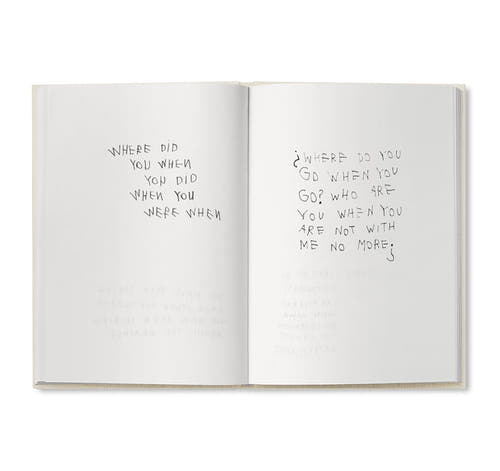 WHERE DID
YOU WHEN
YOU DID
WHEN YOU
WERE WHEN
¿WHERE DO YOU
GO WHEN YOU
GO? WHO ARE
YOU WHEN YOU
ARE NOT WITH
ME NO MORE¿